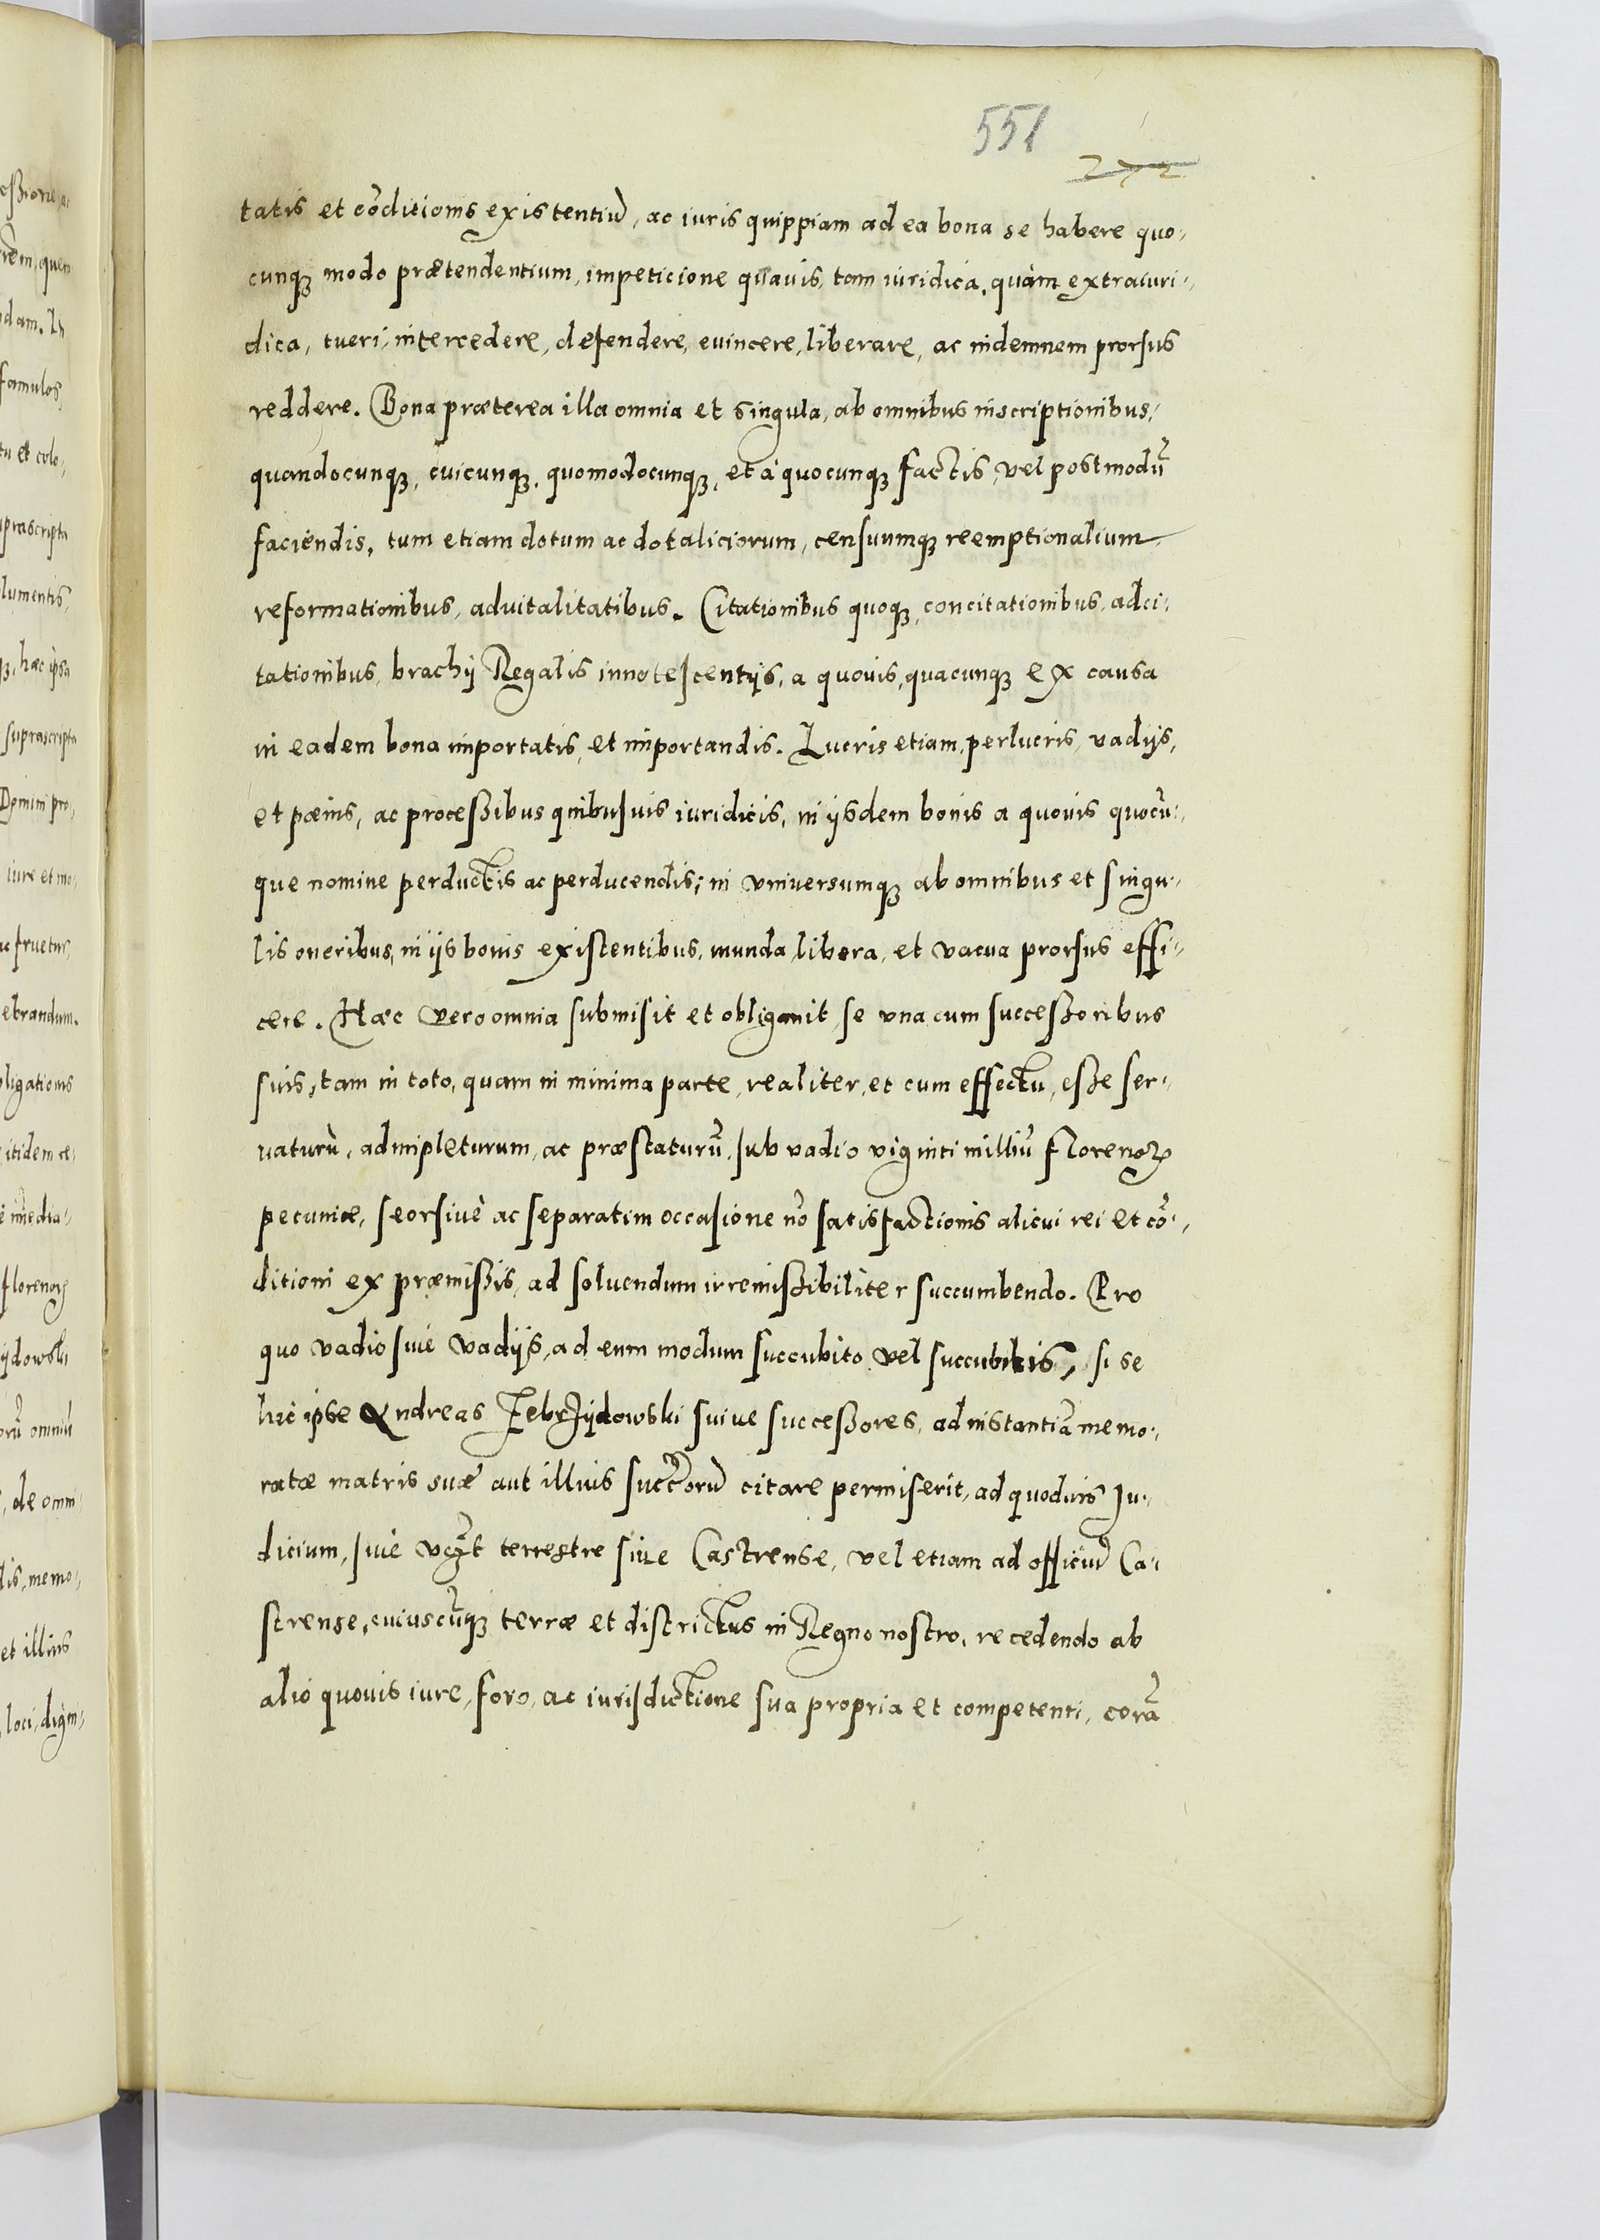 551
tatis et cōditionis existentiū, ac iuris quippiam ad ea bona se habere quo-
cunqꝫ modo prætendentium, impeticione quauis, tam iuridica, quàm extraiuri-
dica, tueri, intercedere, defendere, euincere, liberare, ac indemnem prorsus
reddere. Bona præterea illa omnia et singula, ab omnibus inscriptionibus,
quandocunqꝫ, cuicunqꝫ, quomodocunqꝫ, et à quocunqꝫ factis, vel postmodū
faciendis, tum etiam dotum ac dotaliciorum, censuumqꝫ reemptionalium
reformationibus, aduitalitatibus. Citationibus quoqꝫ, concitationibus, adci-
tationibus, brachij Regalis innotescentijs, a quouis, quacunqꝫ ex causa
in eadem bona importatis, et importandis. Lucris etiam, perlucris, vadijs,
et pœnis, ac proceßibus quibusuis iuridicis, in ijsdem bonis a quouis quocū-
que nomine perductis ac perducendis; in vniuersumqꝫ ab omnibus et singu-
lis oneribus, in ijs bonis existentibus, munda, libera, et vacua prorsus effi-
cere. Hæc vero omnia submisit et obligauit, se vna cum succeßoribus
suis, tam in toto, quam in minima parte, realiter, et cum effectu, eße ser-
uaturū, adimpleturum, ac præstaturū, sub vadio viginti milliū florenoꝝ
pecuniæ, seorsiuè ac separatim occasione nō satisfactionis alicui rei et cō-
ditioni ex præmißis, ad soluendum irremißibiliter succumbendo. Pro
quo vadio siue vadijs, ad eum modum succubito vel succubitis, si se
hic ipse Andreas Zebrzÿdowski suiue succeßores, ad instantiā memo-
ratæ matris suæ aut illius succorū citare permiserit, ad quoduis Ju-
dicium, siue terrestre siue Castrense, vel etiam ad officiū Ca-
strense, cuiuscūqꝫ terræ et districtus in Regno nostro, recedendo ab
alio quouis iure, foro, ac iurisdictione sua propria et competenti, corā